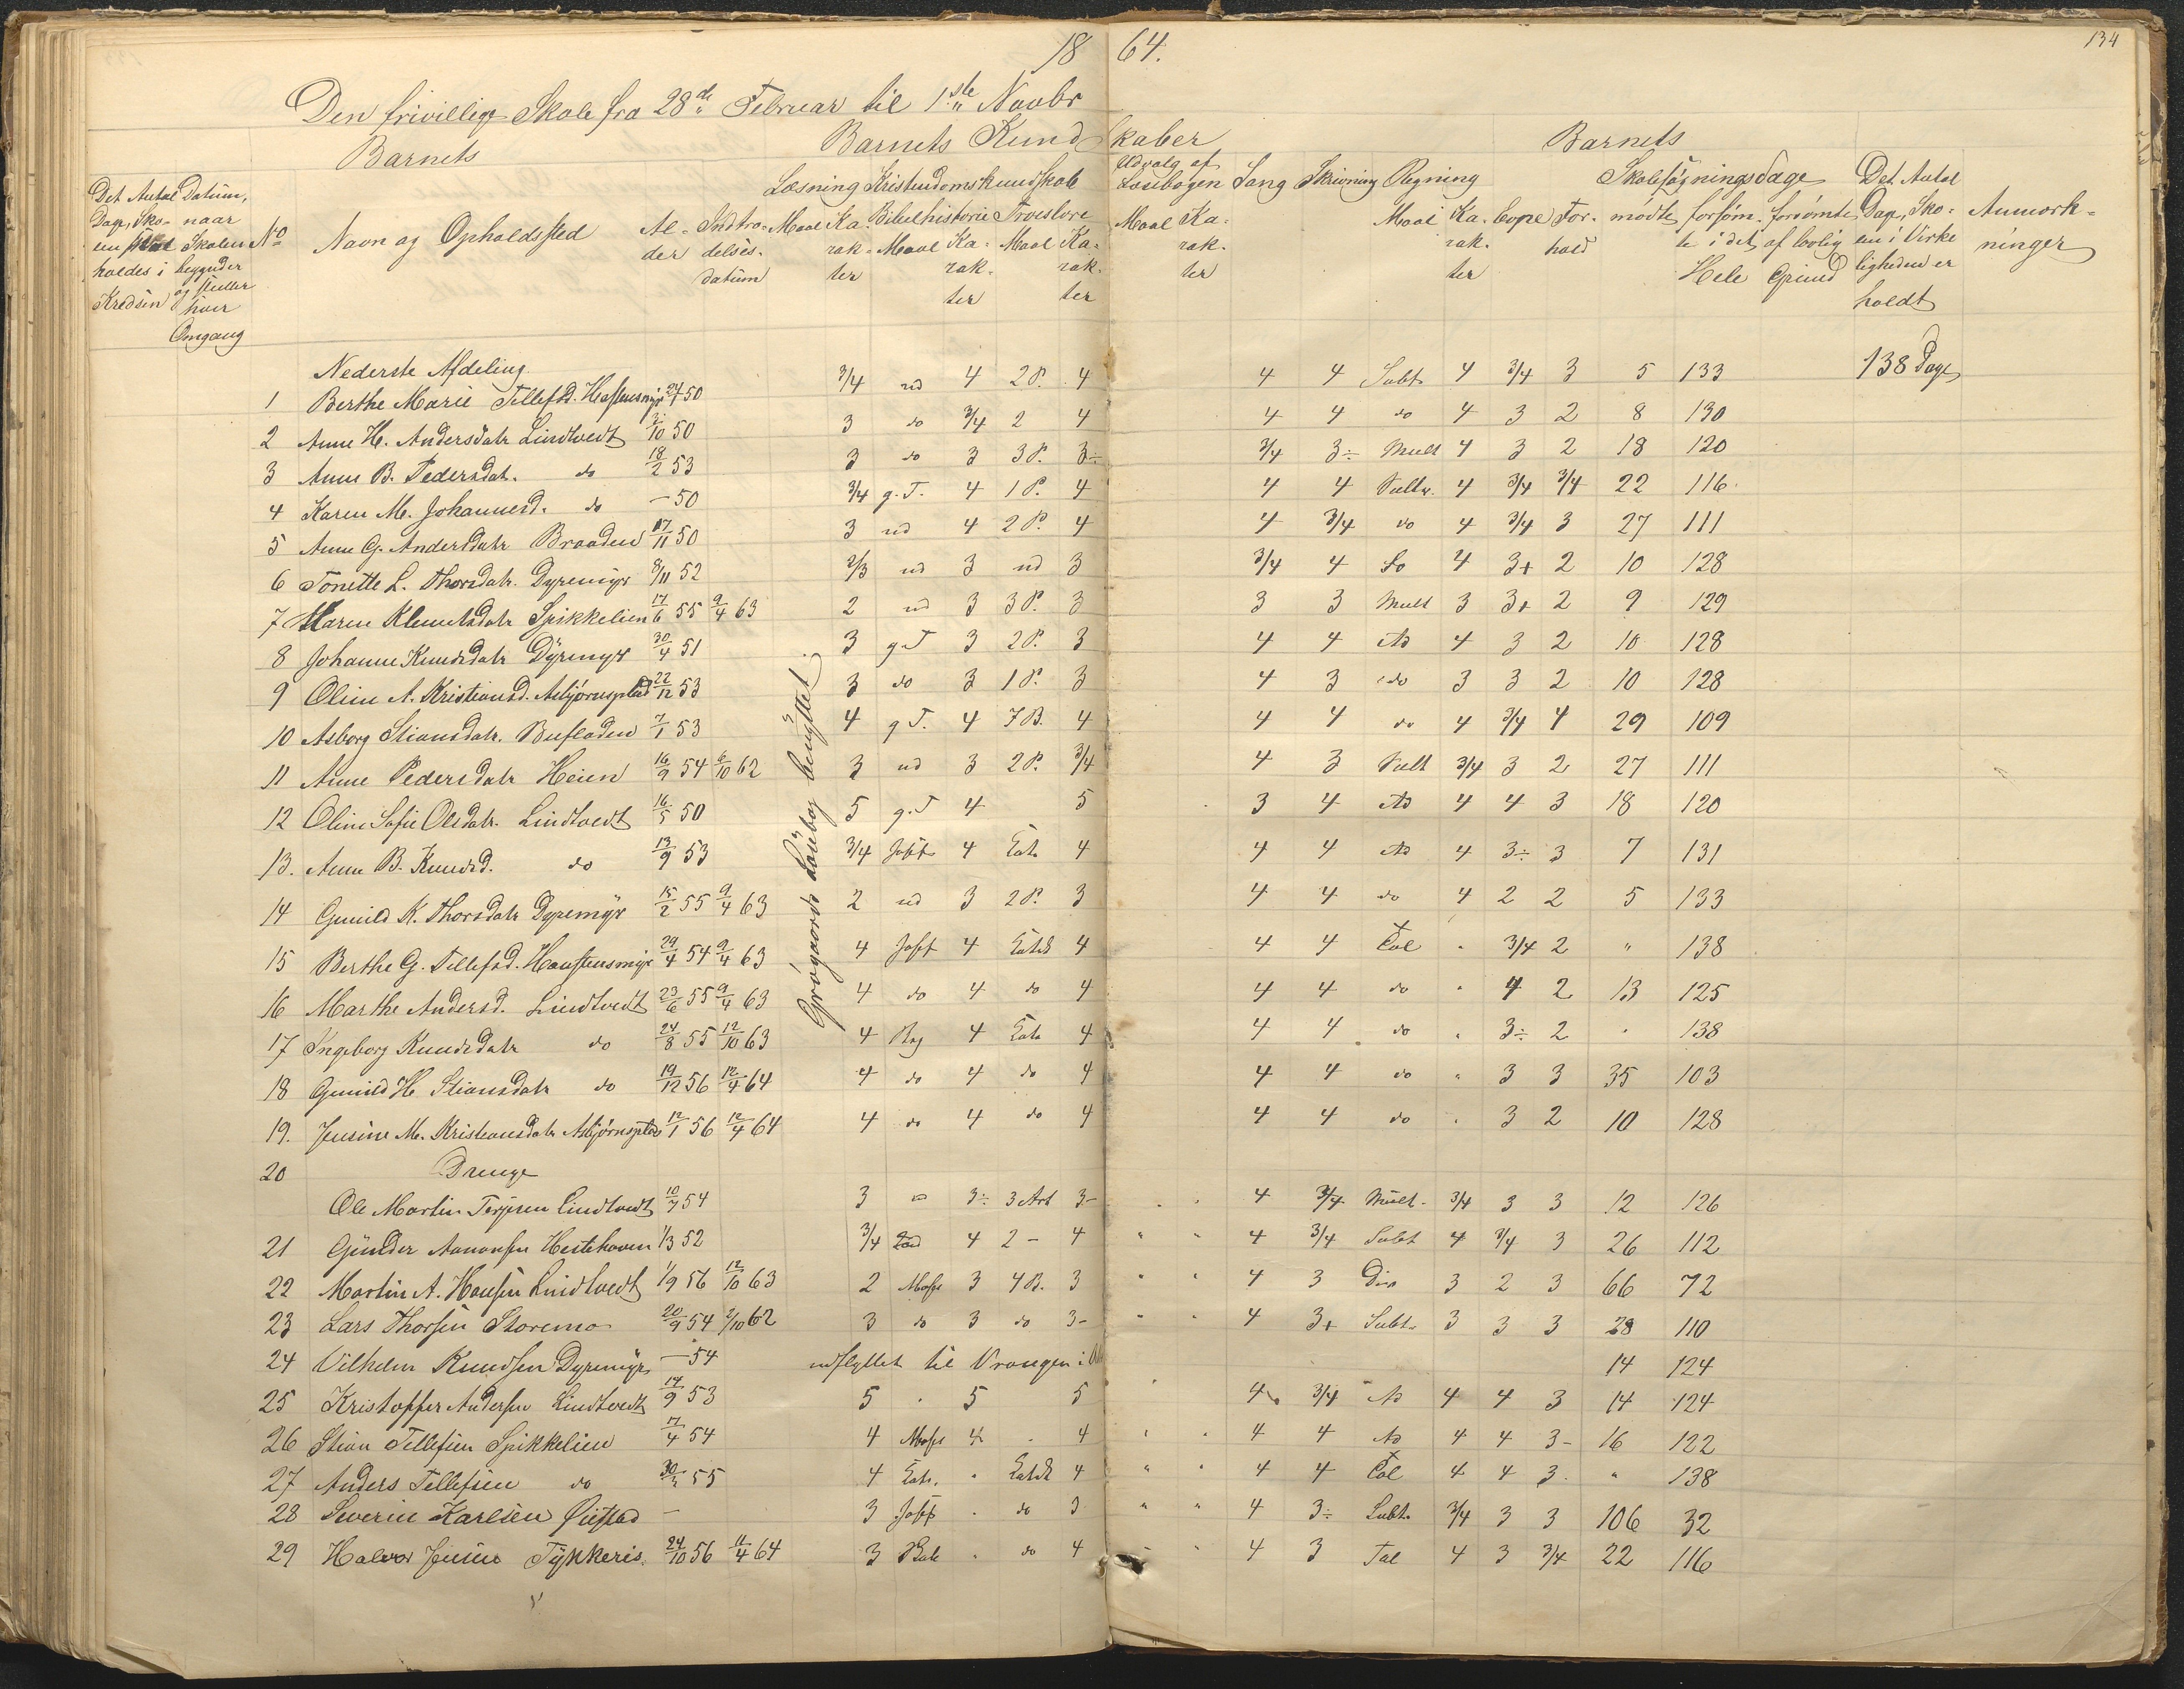 18 64.
134
Den frivillige Skole fra 28de Februar til 1ste Novbr
Barnets Barnets Kundskaber Barnets
Det Antal Dage, Skolen skal holdes i Kredsen
Datum, naar Skolen begynder og slutter hver Omgang
No
Navn og Opholdssted
Alder
Indtrædelsesdatum
Læsning Maal Karakter
Kristendomskundskab
Bibelhistorie Maal Karakter
Troeslære Maal Karakter
Udvalg af Læsebogen Maal Karakter
Sang Skrivning
Regning Maal Karakter
Evne Forhold
Skolesøgningsdage
mødte forsømte i det Hele forsømte af lovlig Grund
Det Antal Dage, Skolen i Virkeligheden er holdt
Anmærkninger
Nederste Afdeling
1 Berthe Marie Tellefsd. 50 3/4 4 2 P. 4 4 4 Subt 4 3/4 3 5 133 138 Dage
2 Anne H. Andersdatr Lindtvedt 50 3 do 3/4 2 4 4 4 do 4 3 2 8 130
3 Anne B. Pedersdat. do 18/2 53 3 do 3 3 P. 3÷ 3/4 3÷ Mult 4 3 2 18 120
4 Karen M. Johannesd. do - 50 3/4 g.T. 4 1 P. 4 4 4 4 3/4 3/4 22 116
5 Anne G. Andersdatr Braaden 17/11 50 3 ud 4 2 P. 4 4 3/4 do 4 3/4 3 27 111
6 Tonette L. Thorsdatr. Dyremyr 8/11 52 2/3 ud 3 ud 3 3/4 4 do 4 3+ 2 10 128
7 Maren Klemetsdatr Spikkelien 17/6 55 9/4 63 2 ud 3 3 P. 3 3 3 Mult 3 3+ 2 9 129
8 Johanne Knudsdatr Dyremyr 30/4 51 3 g.T 3 2 P. 3 4 4 Ad 4 3 2 10 128
9 Oline A. Kristiansd. Asbjørnsplad 22/12 53 3 do 3 1 P. 3 4 3 do 3 3 2 10 128
10 Asborg Stiansdatr. 7/1 53 4 g T. 4 7 B. 4 4 4 do 4 3/4 4 29 109
11 Anne Pedersdatr Heien 16/9 54 6/10 62 3 ud 3 2 P. 3/4 4 3 3/4 3 2 27 111
12 Oline Sofie Olsdatr. Lindtvedt 16/5 50 5 g.T 4 5 3 4 Ad 4 4 3 18 120
13. Anne B. Knudsd. do 13/9 53 3/4 4 4 4 4 Ad 4 3÷ 3 7 131
14 Gunild K. Thorsdatr Dyremyr 15/2 55 9/4 63 2 ud 3 2 P. 3 4 4 do 4 2 2 5 133
15 Berthe G. Tellefsd. 29/4 54 9/4 63 4 4 4 4 4 " 3/4 2 " 138
16 Marthe Andersd. Lindtvedt 23/6 55 9/4 63 4 do 4 do 4 4 4 do " 4 2 13 125
17 Ingeborg Knudsdatr do 24/8 55 12/10 63 4 4 4 4 4 do " 3÷ 2 " 138
18 Gunild H. Stiansdatr do 19/12 56 12/4 64 4 do 4 do 4 4 4 do " 3 3 35 103
19. Jensine M. Kristiansdatr Asbjørnsplas 12/1 56 12/4 64 4 do 4 do 4 4 4 do " 3 2 10 128
Grögaards Læsebog benyttet.
20 Drenge
Ole Martin Terjesen Lindtvedt 10/7 54 3 3÷ 3 Art 3- 4 3/4 Mult. 3/4 3 3 12 126
21 Gunder Aanonsen 1/3 52 3/4 4 2 - 4 4 3/4 Subt 4 3/4 3 26 112
22 Martin A. Hansen Lindtvedt 1/9 56 12/10 63 2 3 4 B. 3 4 3 Div 3 2 3 66 72
23 Lars Thorsen Storemo 20/9 54 2/10 62 3 do 3 do 3- 4 3+ Subt. 3 3 3 28 110
24 Vilhelm Knudsen Dyremyr - 54 udflyttet til Vrangen i 14 124
25 Kristoffer Andersen Lindtvedt 14/9 53 5 5 5 4 3/4 Ad 4 4 3 14 124
26 Stian Tellefsen Spikkelien 7/4 54 4 4 4 4 4 Ad 4 4 3- 16 122
27 Anders Tellefsen do 55 4 " 4 4 4 4 4 3 " 138
28 Severin Karlsen - 3 do 3 4 3÷ Subt. 3/4 3 3 106 32
29 Halvor Jensen Tykkeris. 24/10 56 11/4 64 3 do 4 4 3 Tal 4 3 3/4 22 116